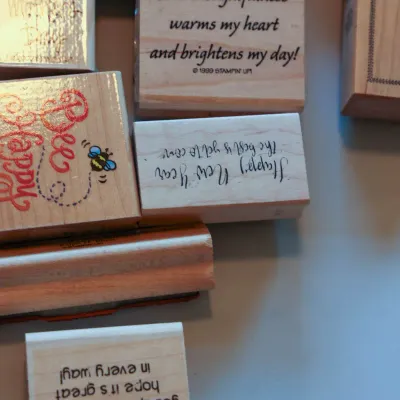 warms my heart
and brightens my day!
© 1999 STAMPIN' UP!
Bee
Happy
Happy New Year
The best is yet to come
hope it's great
in every way!